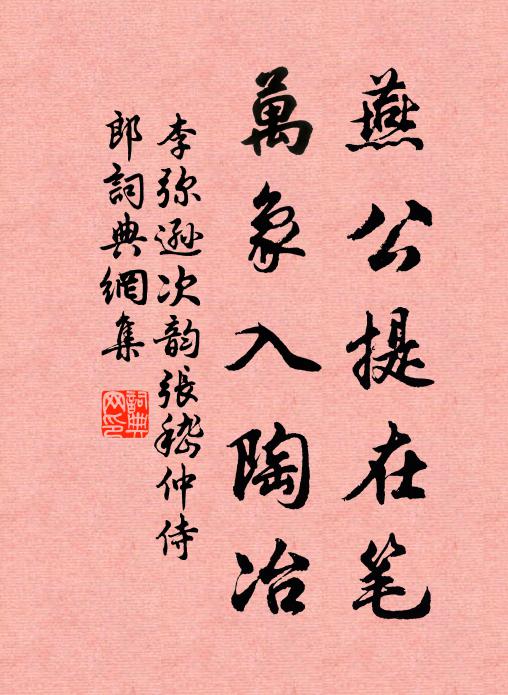 燕公提在笔
萬象入陶冶
李弥逊次韵張嵇仲侍
郎詞典網集
詞典网印